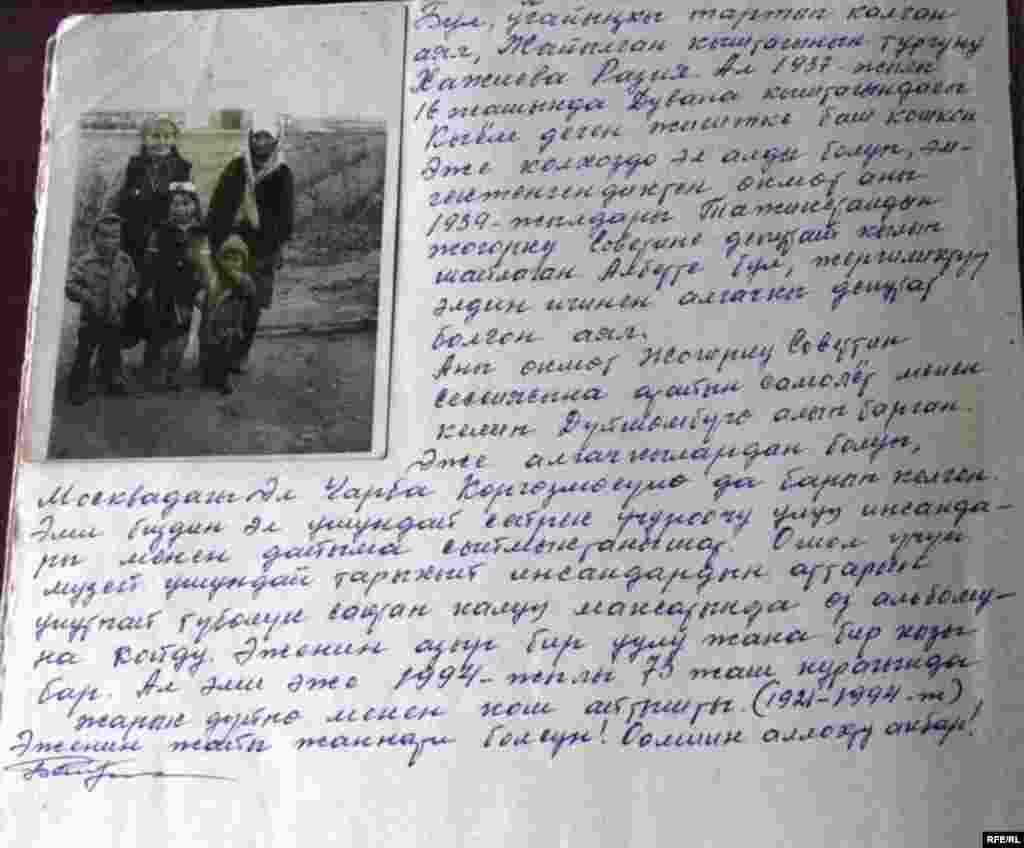 Бул, ұғайыңкы тартып калган
аял, Жайылган кыштагынын тургуну
Хажиева Разия. Ал 1937-жылы
16 жашында Дувана кыштагындагы
деген жигитке баш кошкон
Эже колхоздо эл алды болуп, эм-
гектенгендиктен, окмот аны
1939-жылдары Тажикстандын
жогорку Советине депутат кылып
шайлаган Албетте бул, жергиликтуу
элдин ичинен алгачкы депутат
болгон аял.
Аны окмот Жогорку Советтин
сессиясына самолёт менен
келип алып барган.
Эже алгачкылардан болуп,
Москвадагы Эл Чарба Коргозмосуно да барып калган.
Эми биздин эл ушундай улуу инсанда-
ры менен дайыма сыймыктанышат. Ошол учун
музей ушундай тарыхый инсандардын аттарын
унутпай туболук сактап калуу максатында оз альбому-
на койду. Эженин азыр бир уулу жана бир кызы
бар. Ал эми эже 1994-жылы 73 жаш курагында
жарык дуйно менен кош айтышты. (1921-1994-ж)
Эженин жайы жаннатта болсун! Оомийин аллоху акбар!
RFE/RL